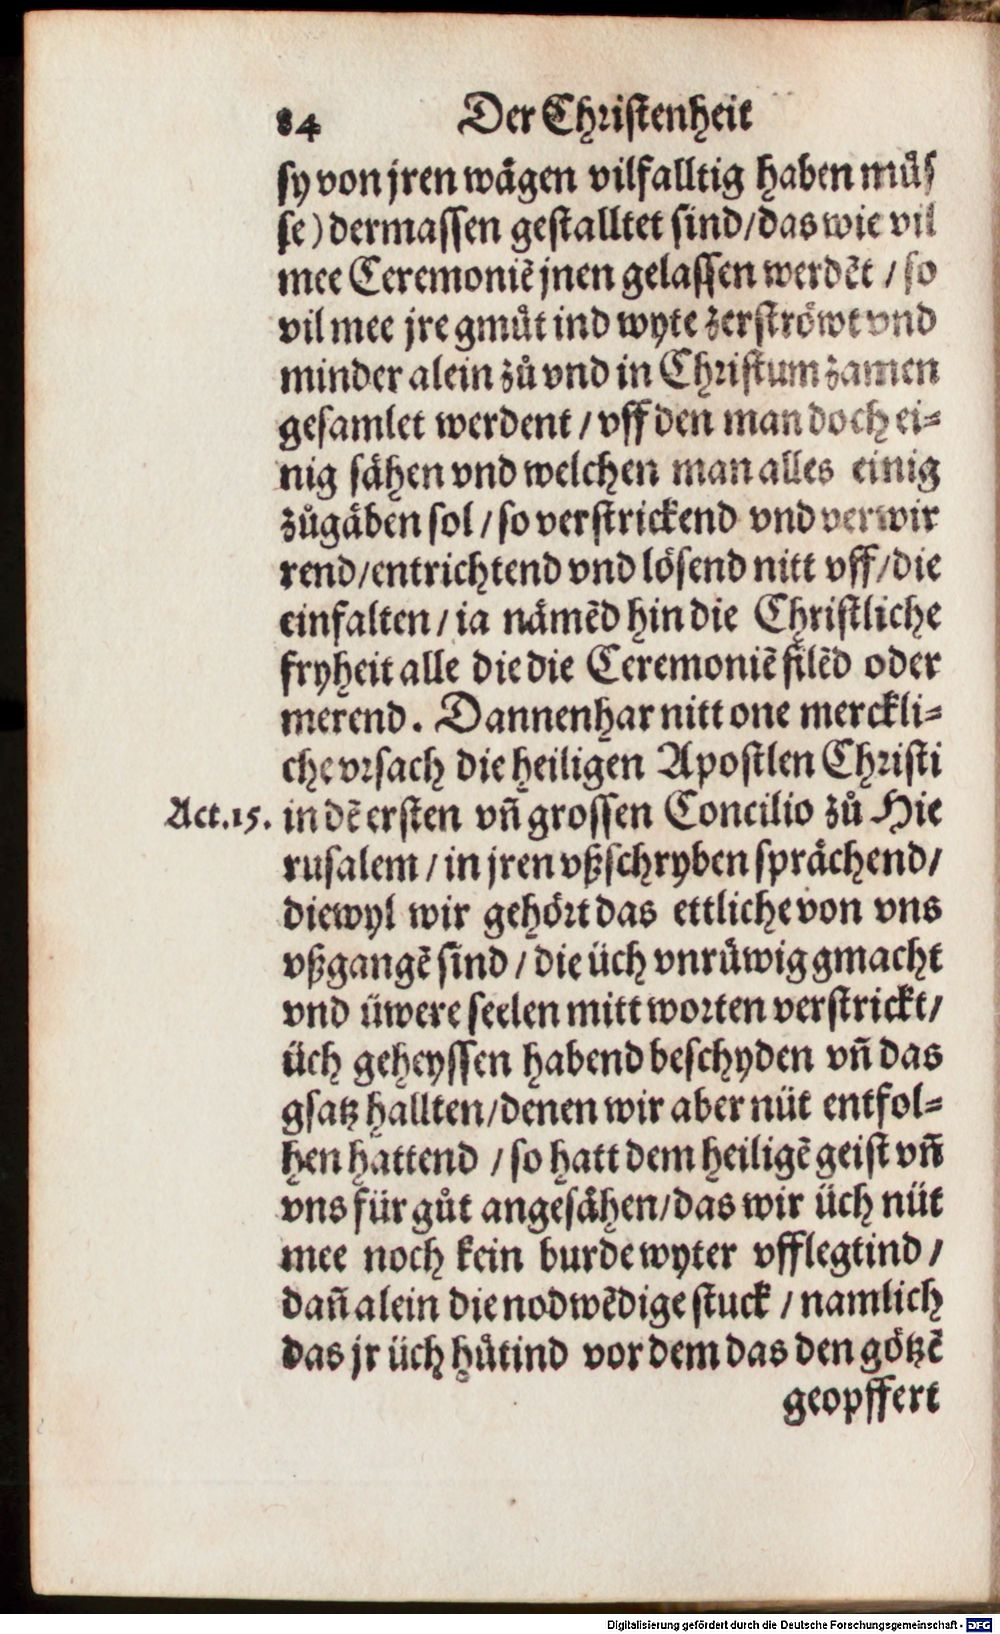 84 Der Christenheit
sy von jren wägen vilfalltig haben müs
se) dermassen gestalltet sind/das wie vil
mee Ceremoniē jnen gelassen werdēt / so
vil mee jre gmuͤt ind wyte zerströwt vnd
minder alein zuͦ vnd in Christum zamen
gesamlet werdent / vff den man doch ei=
nig sähen vnd welchen man alles einig
zuͦgäben sol / so verstrickend vnd verwir
rend/entrichtend vnd lösend nitt vff/die
einfalten / ia nämēd hin die Christliche
fryheit alle die die Ceremoniē filēd oder
merend. Dannenhar nitt one merckli=
che vrsach die heiligen Apostlen Christi
Act.15. in dē ersten vñ grossen Concilio zuͦ Hie
rusalem / in jren vßschryben sprächend/
diewyl wir gehört das ettliche von vns
vßgangē sind / die üch vnruͤwig gmacht
vnd üwere seelen mitt worten verstrickt/
üch geheyssen habend beschyden vñ das
gsatz hallten/denen wir aber nüt entfol=
hen hattend / so hatt dem heiligē geist vñ
vns für guͦt angesähen/das wir üch nüt
mee noch kein burde wyter vfflegtind /
dañ alein die nodwēdige stuck / namlich
das jr üch huͤtind vor dem das den götzē
geopffert
Digitalisierung gefördert durch die Deutsche Forschungsgemeinschaft - DFG